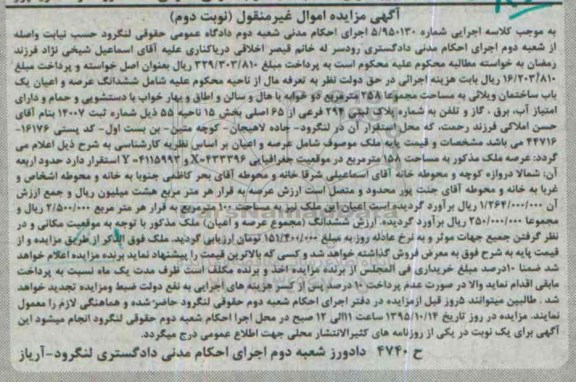 آگهی مزایده اموال غیرمنقول (نوبت دوم)
به موجب کلاسه اجرایی شماره ۵/۹۵۰۱۳۰ اجرای احکام مدنی شعبه دوم دادگاه عمومی حقوقی لنگرود حسب نیابت واصله
از شعبه دوم اجرای احکام مدنی دادگستری رودسر له خانم قیصر اخلاقی دریاکناری علیه آقای اسماعیل شیخی نژاد فرزند
رمضان به خواسته مطالبه محکوم علیه محکوم است به پرداخت مبلغ ۳۳۹/۳۰۳/۸۱۰ ریال بعنوان اصل خواسته و پرداخت مبلغ
۱۶/۲۰۳/۸۱۰ ریال بابت هزینه اجرائی در حق دولت نظر به تعرفه مال از ناحیه محکوم علیه شامل ششدانگ عرصه و اعیان یک
باب ساختمان ویلائی به مساحت مجموعا ۲۵۸ مترمربع دو خوابه با هال و سالن و اطاق و بهار خواب با دستشویی و حمام و دارای
امتیاز آب، برق، گاز و تلفن به شماره پلاک ثبتی ۲۹۴ فرعی از ۶۵ اصلی بخش ۱۵ ناحیه ۵۵ ذیل شماره ثبت ۱۴۰۰۷ بنام آقای
حسن املاکی فرزند رحمت، که محل استقرار آن در لنگرود- جاده لاهیجان- کوچه متین- بن بست اول- کد پستی ۱۶۱۷۶-
۴۴۷۱۶ می باشد مشخصات و قیمت پایه ملک موصوف شامل عرصه و اعیان بر اساس نظریه کارشناسی به شرح ذیل اعلام می
گردد: عرصه ملک مذکور به مساحت ۱۵۸ مترمربع در موقعیت جغرافیایی X=۴۳۳۳۹۶ و Y=۴۱۱۵۹۹۳ استقرار دارد حدود اربعه
آن: شمالا دروازه کوچه و محوطه خانه آقای اسماعیلی شرقا خانه و محوطه آقای بحر کاظمی جنوبا به خانه و محوطه اشخاص و
غربا به خانه و محوطه آقای جنت پور محدود و متصل است ارزش عرصه به قرار هر متر مربع هشت میلیون ریال و جمع ارزش
آن ۱/۲۶۴/۰۰۰/۰۰۰ ریال برآورد گردیده است اعیان این ملک نیز به مساحت ۱۰۰ مترمربع به قرار هر متر مربع ۲/۵۰۰/۰۰۰ ریال و
مجموعا ۲۵۰/۰۰۰/۰۰۰ ریال برآورد گردیده. ارزش ششدانگ (مجموع عرصه و اعیان) ملک مذکور با توجه به موقعیت مکانی و در
نظر گرفتن جمیع جهات موثر و به نرخ عادله روز به مبلغ ۱۵۱/۴۰۰/۰۰۰ تومان ارزیابی گردید. ملک فوق الذکر از طریق مزایده و از
قیمت پایه به شرح فوق به معرض فروش گذاشته خواهد شد و کسی که بالاترین قیمت را پیشنهاد نماید برنده مزایده اعلام خواهد
شد ضمنا ۱۰درصد مبلغ خریداری فی المجلس از برنده مزایده اخذ و برنده مکلف است ظرف مدت یک ماه نسبت به پرداخت
مابقی اقدام نماید والا در صورت عدم پرداخت ۱۰ درصد پس از کسر هزینه های اجرایی به نفع دولت ضبط ومزایده تجدید خواهد
شد. طالبین میتوانند ۵روز قبل ازمزایده در دفتر اجرای احکام شعبه دوم حقوقی لنگرود حاضر شده و هماهنگی لازم را معمول
نمایند. مزایده در روز تاریخ ۱۳۹۵/۱۰/۱۴ ساعت ۱۱الی ۱۲ صبح در محل اجرا احکام شعبه دوم حقوقی لنگرود انجام میشود این
آگهی برای یک نوبت در یکی از روزنامه های کثیرالانتشار محلی جهت اطلاع عمومی درج میگردد.
ح ۴۷۴۰ دادورز شعبه دوم اجرای احکام مدنی دادگستری لنگرود-آریاز